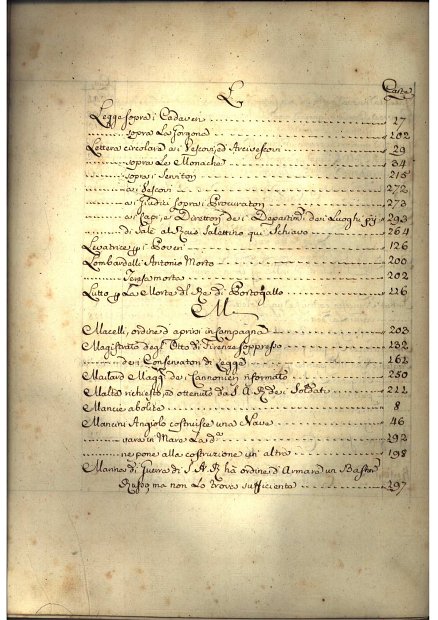 L Carte
Legge sopra i Cadaveri 17
sopra La Gorgona 102
Lettera circolare ai Vescovi, ed Arcivescovi 29
sopra Le Monache 34
sopra i Servitori 215
ai Vescovi 272
ai Giudici sopra i Procuratori 273
ai Capi, e Direttori dei Departim.ti dei Luoghi pij 293
di Salè al Rais Salettino qui Schiavo 264
Levatrice p i Poveri 126
Lombardelli Antonio Morto 200
Teresa morta 202
Lutto p La Morte del Rè di Portogallo 126
M
Macelli, ordine d'aprirsi in Campagna 203
Magistrato degl'Otto di Firenze soppresso 132
dei Conservatori di Legge 162
Mailard Magg.e dei Cannonieri riformato 250
Maltò richiesto, ed ottenuto da S. A. R. dei Soldati 222
Mancie abolite 8
Mancini Angiolo costruisce una Nave 46
vara in Mare La d.a 192
ne pone alla costruzione un'altra 198
Marina di Guerra di S. A. R. hà ordine d'Armare un Bastim.
Russo, ma non Lo trova sufficiente 297